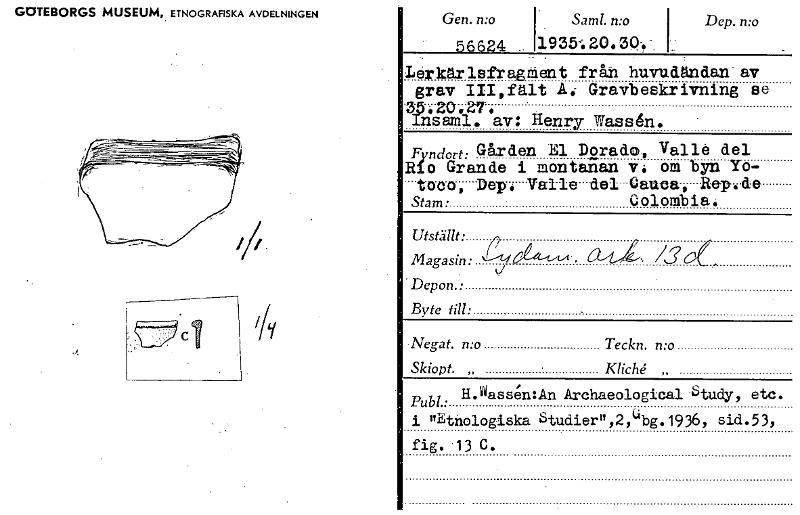 GÖTEBORGS MUSEUM, ETNOGRAFISKA AVDELNINGEN
1/1
C
1/4
Gen. n:o Saml. n:o Dep. n:o
56624 1935.20.30.
Lerkärlsfragment från huvudändan av
grav III, fält A. Gravbeskrivning se
35.20.27.
Insaml. av: Henry Wassén.
Fyndort: Gården El Dorado, Valle del
Río Grande i montañan v. om byn Yo-
toco, Dep. Valle del Cauca, Rep.de
Stam: Colombia.
Utställt:
Magasin: Sydam. ark. 13d.
Depon.:
Byte till:
Negat. n:o Teckn. n:o
Skiopt. „ Kliché „
Publ.: H.Wassén:An Archaeological Study, etc.
i "Etnologiska Studier",2,Gbg.1936, sid.53,
fig. 13 C.